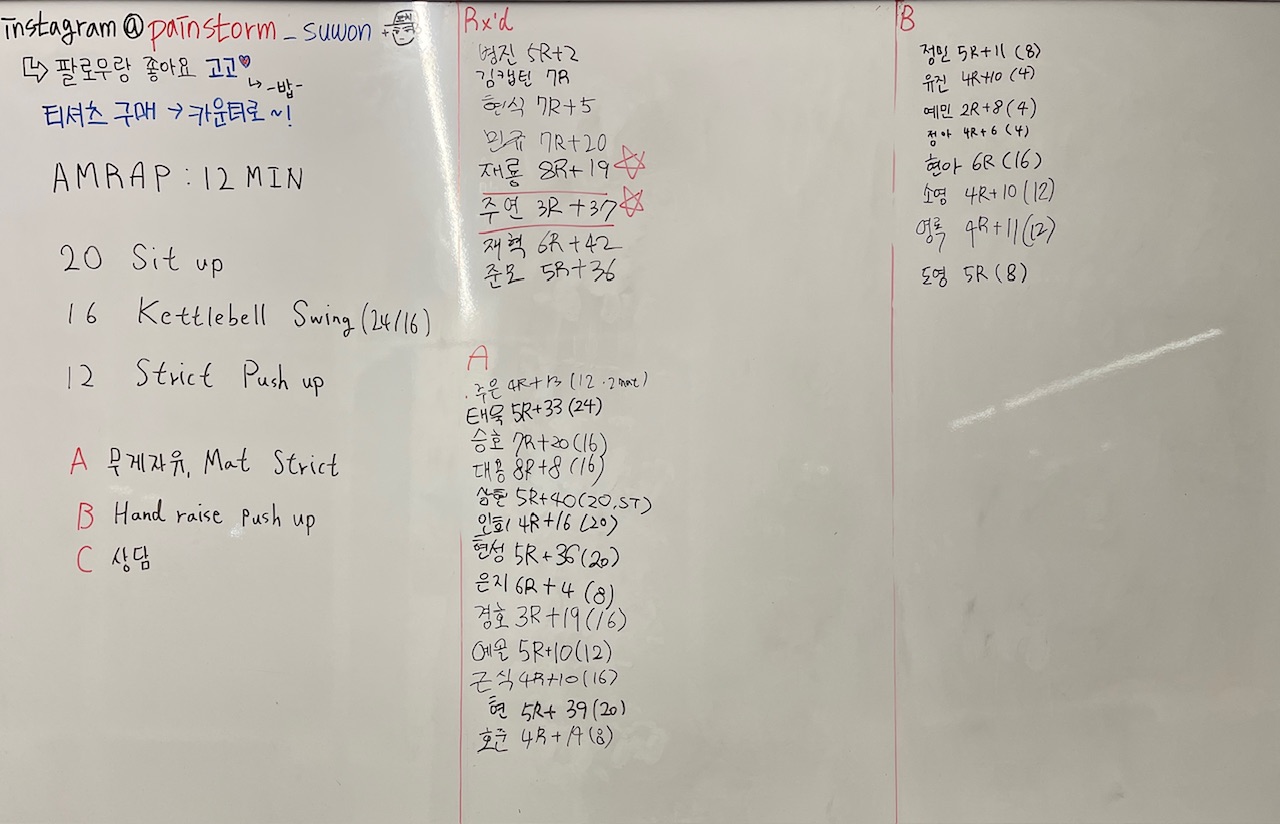 instagram@painstorm_suwon
↳ 팔로우랑 좋아요 고고♥
↳ -밥-
티셔츠 구매 → 카운터로~!
AMRAP : 12 MIN
20 Sit up
16 Kettlebell Swing (24/16)
12 Strict Push up
A 무게자유, Mat Strict
B Hand raise push up
C 상담
Rx'd
병진 5R+2
김캡틴 7R
현식 7R+5
민규 7R+20
재룡 8R+19 ☆
주연 3R+37 ☆
재혁 6R+42
준모 5R+36
A
주은 4R+13 (12 · 2mat)
태욱 5R+33 (24)
승호 7R+20 (16)
대용 8R+8 (16)
삼현 5R+40 (20, ST)
인회 4R+16 (20)
현성 5R+36 (20)
은지 6R+4 (8)
경호 3R+19 (16)
예은 5R+10 (12)
근식 4R+10 (16)
현 5R+39 (20)
호준 4R+19 (8)
B
정민 5R+11 (8)
유진 4R+10 (4)
예민 2R+8 (4)
정아 4R+6 (4)
현아 6R (16)
소영 4R+10 (12)
영록 4R+11 (12)
도영 5R (8)